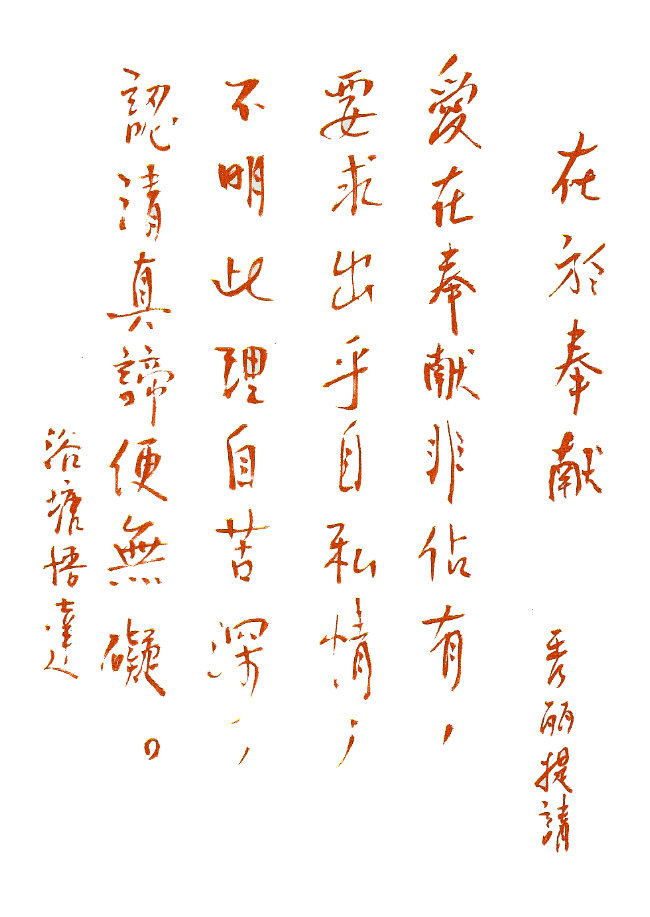 在於奉献
秀丽提請
愛在奉献非佔有，
要求出乎自私情；
不明此理自苦深；
認清真諦便無礙。
浴塘悟達